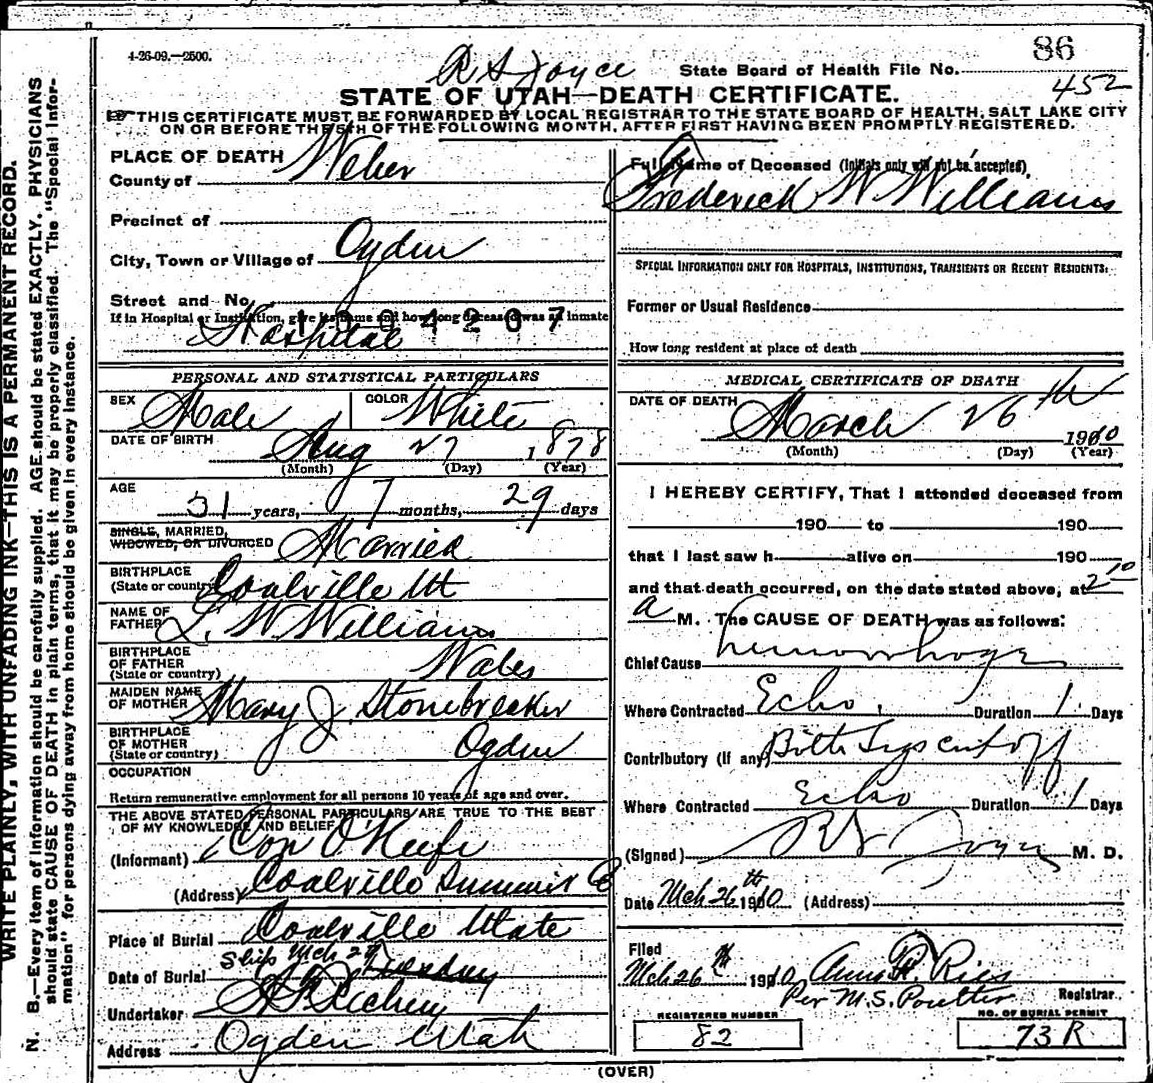 4-26-09.—2500.
R S Joyce
State Board of Health File No.
86
452
STATE OF UTAH—DEATH CERTIFICATE.
THIS CERTIFICATE MUST BE FORWARDED BY LOCAL REGISTRAR TO THE STATE BOARD OF HEALTH, SALT LAKE CITY
ON OR BEFORE THE 5TH OF THE FOLLOWING MONTH, AFTER FIRST HAVING BEEN PROMPTLY REGISTERED.
WRITE PLAINLY, WITH UNFADING INK—THIS IS A PERMANENT RECORD.
N. B.—Every item of information should be carefully supplied. AGE should be stated EXACTLY. PHYSICIANS
should state CAUSE OF DEATH in plain terms, that it may be properly classified. The "Special Infor-
mation" for persons dying away from home should be given in every instance.
PLACE OF DEATH
County of Weber
Precinct of
City, Town or Village of Ogden
Street and No.
If in Hospital or Institution, give its name and how long deceased was an inmate
1004207
Hospital
PERSONAL AND STATISTICAL PARTICULARS
SEX Male COLOR White
DATE OF BIRTH Aug 27 1878
(Month) (Day) (Year)
AGE
31 years, 7 months, 29 days
SINGLE, MARRIED,
WIDOWED, OR DIVORCED Married
BIRTHPLACE
(State or country) Coalville Ut
NAME OF
FATHER L. W. Williams
BIRTHPLACE
OF FATHER
(State or country) Wales
MAIDEN NAME
OF MOTHER Mary J Stonebreaker
BIRTHPLACE
OF MOTHER
(State or country) Ogden
OCCUPATION
Return remunerative employment for all persons 10 years of age and over.
THE ABOVE STATED PERSONAL PARTICULARS ARE TRUE TO THE BEST
OF MY KNOWLEDGE AND BELIEF
(Informant) Con O'Keefe
(Address) Coalville Summit Co
Place of Burial Coalville Utah
Date of Burial Ship Mch 27
Undertaker
Address Ogden Utah
Full Name of Deceased (Initials only will not be accepted)
Frederick W Williams
SPECIAL INFORMATION ONLY FOR HOSPITALS, INSTITUTIONS, TRANSIENTS OR RECENT RESIDENTS:
Former or Usual Residence
How long resident at place of death
MEDICAL CERTIFICATE OF DEATH
DATE OF DEATH
March 26th 1910
(Month) (Day) (Year)
I HEREBY CERTIFY, That I attended deceased from
190 to 190
that I last saw h alive on 190
and that death occurred, on the date stated above, at 2 10
a M. The CAUSE OF DEATH was as follows:
Chief Cause hemorrhage
Where Contracted Echo. Duration 1 Days
Contributory (if any) Both legs cut off
Where Contracted Echo Duration 1 Days
(Signed) R S Joyce M. D.
Date Mch 26th 1910 (Address)
Filed
Mch 26 1910 Anna R. Ries
Per M.S. Poulter Registrar
REGISTERED NUMBER
82
NO. OF BURIAL PERMIT
73 R
(OVER)